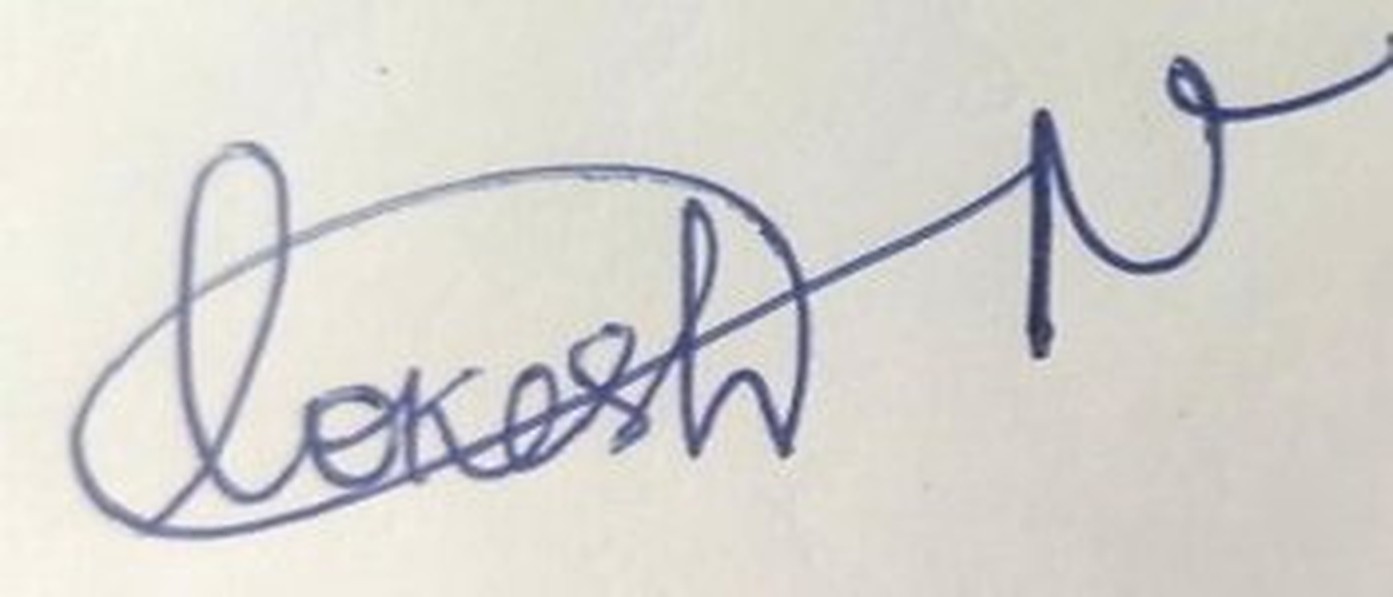 Lokesh N